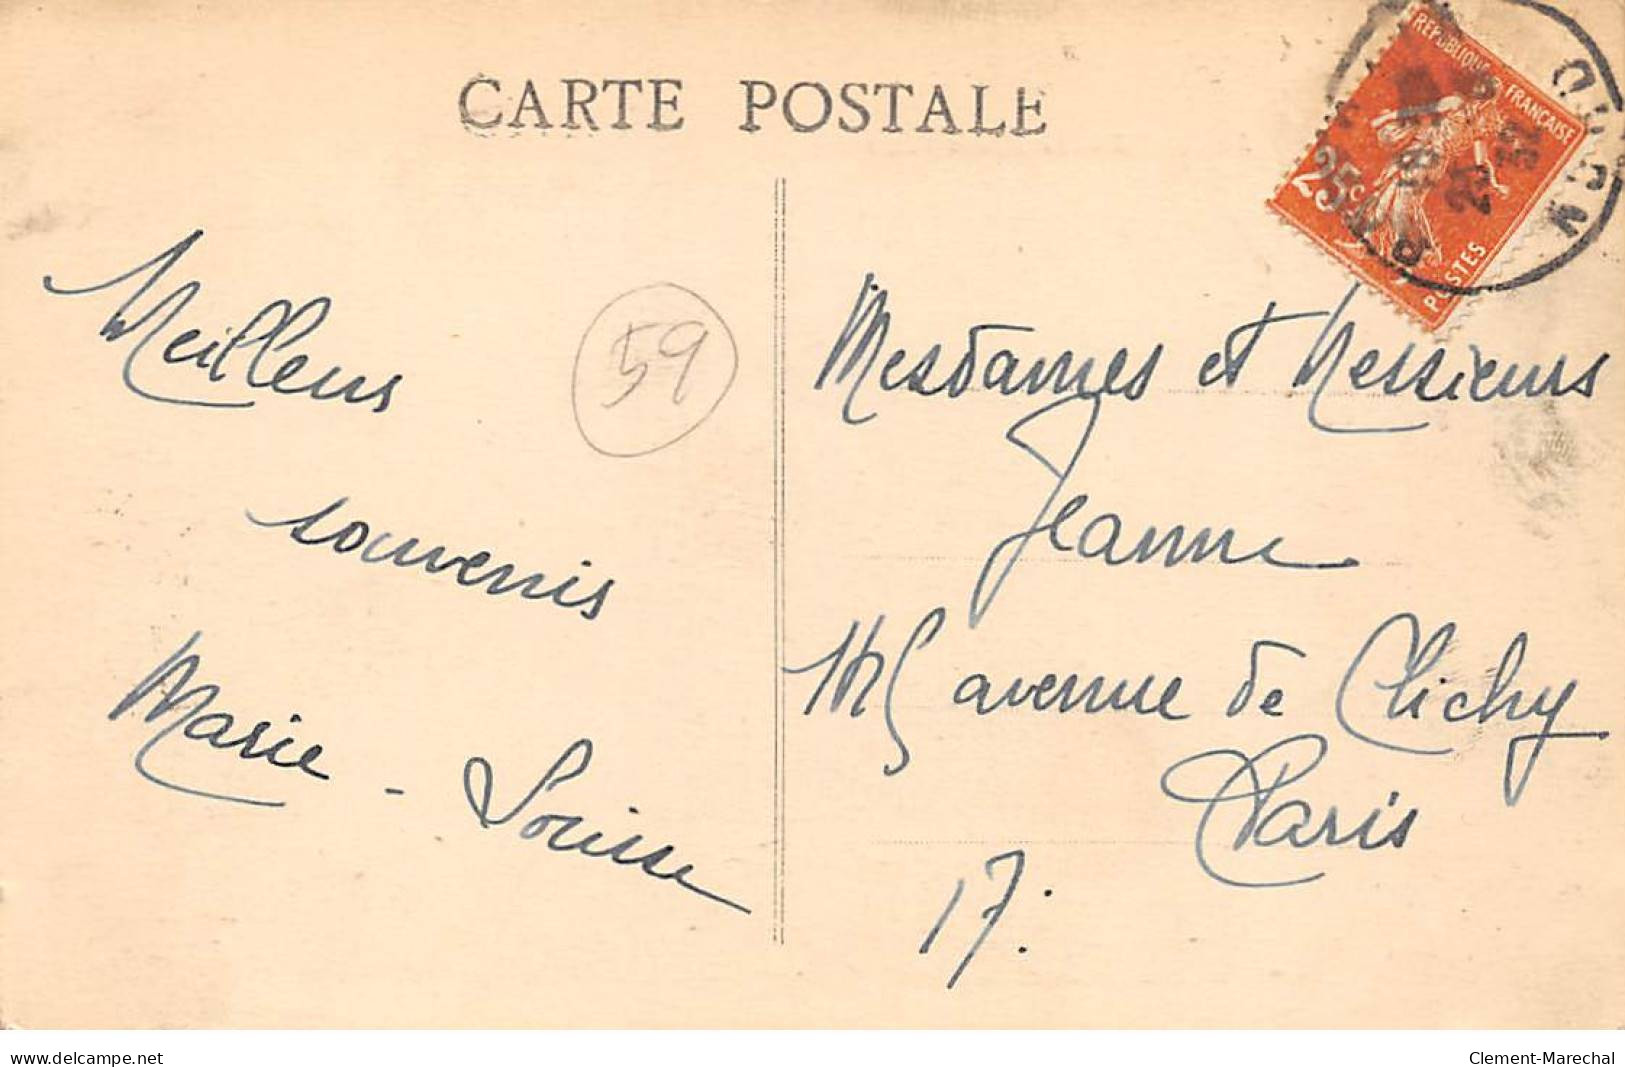 CARTE POSTALE
REPUBLIQUE FRANÇAISE
25c
POSTES
Meilleurs
souvenirs
Marie - Louise
59
Mesdames et Messieurs
Jeanne
avenue de Clichy
Paris
17.
www.delcampe.net
Clement-Marechal